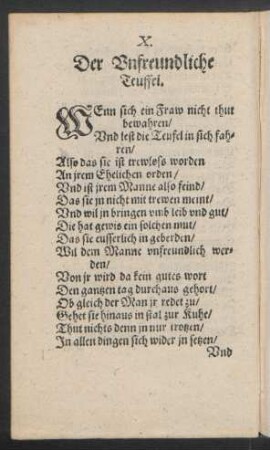 X.
Der Vnfreundliche
Teuffel.
WEnn sich ein Fraw nicht thut
bewahren/
Vnd lest die Teufel in sich fah-
ren/
Also das sie ist trewloss worden
An jrem Ehelichen orden/
Vnd ist jrem Manne also feind/
Das sie jn nicht mit trewen meint/
Vnd wil jn bringen vmb leib vnd gut/
Die hat gewis ein solchen mut/
Das sie eusserlich in geberden/
Wil dem Manne vnfreundlich wer-
den/
Von jr wird da kein gutes wort
Den gantzen tag durchaus gehort/
Ob gleich der Man jr redet zu/
Gehet sie hinaus in stal zur Kuhe/
Thut nichts denn jn nur trotzen/
In allen dingen sich wider jn setzen/
Vnd